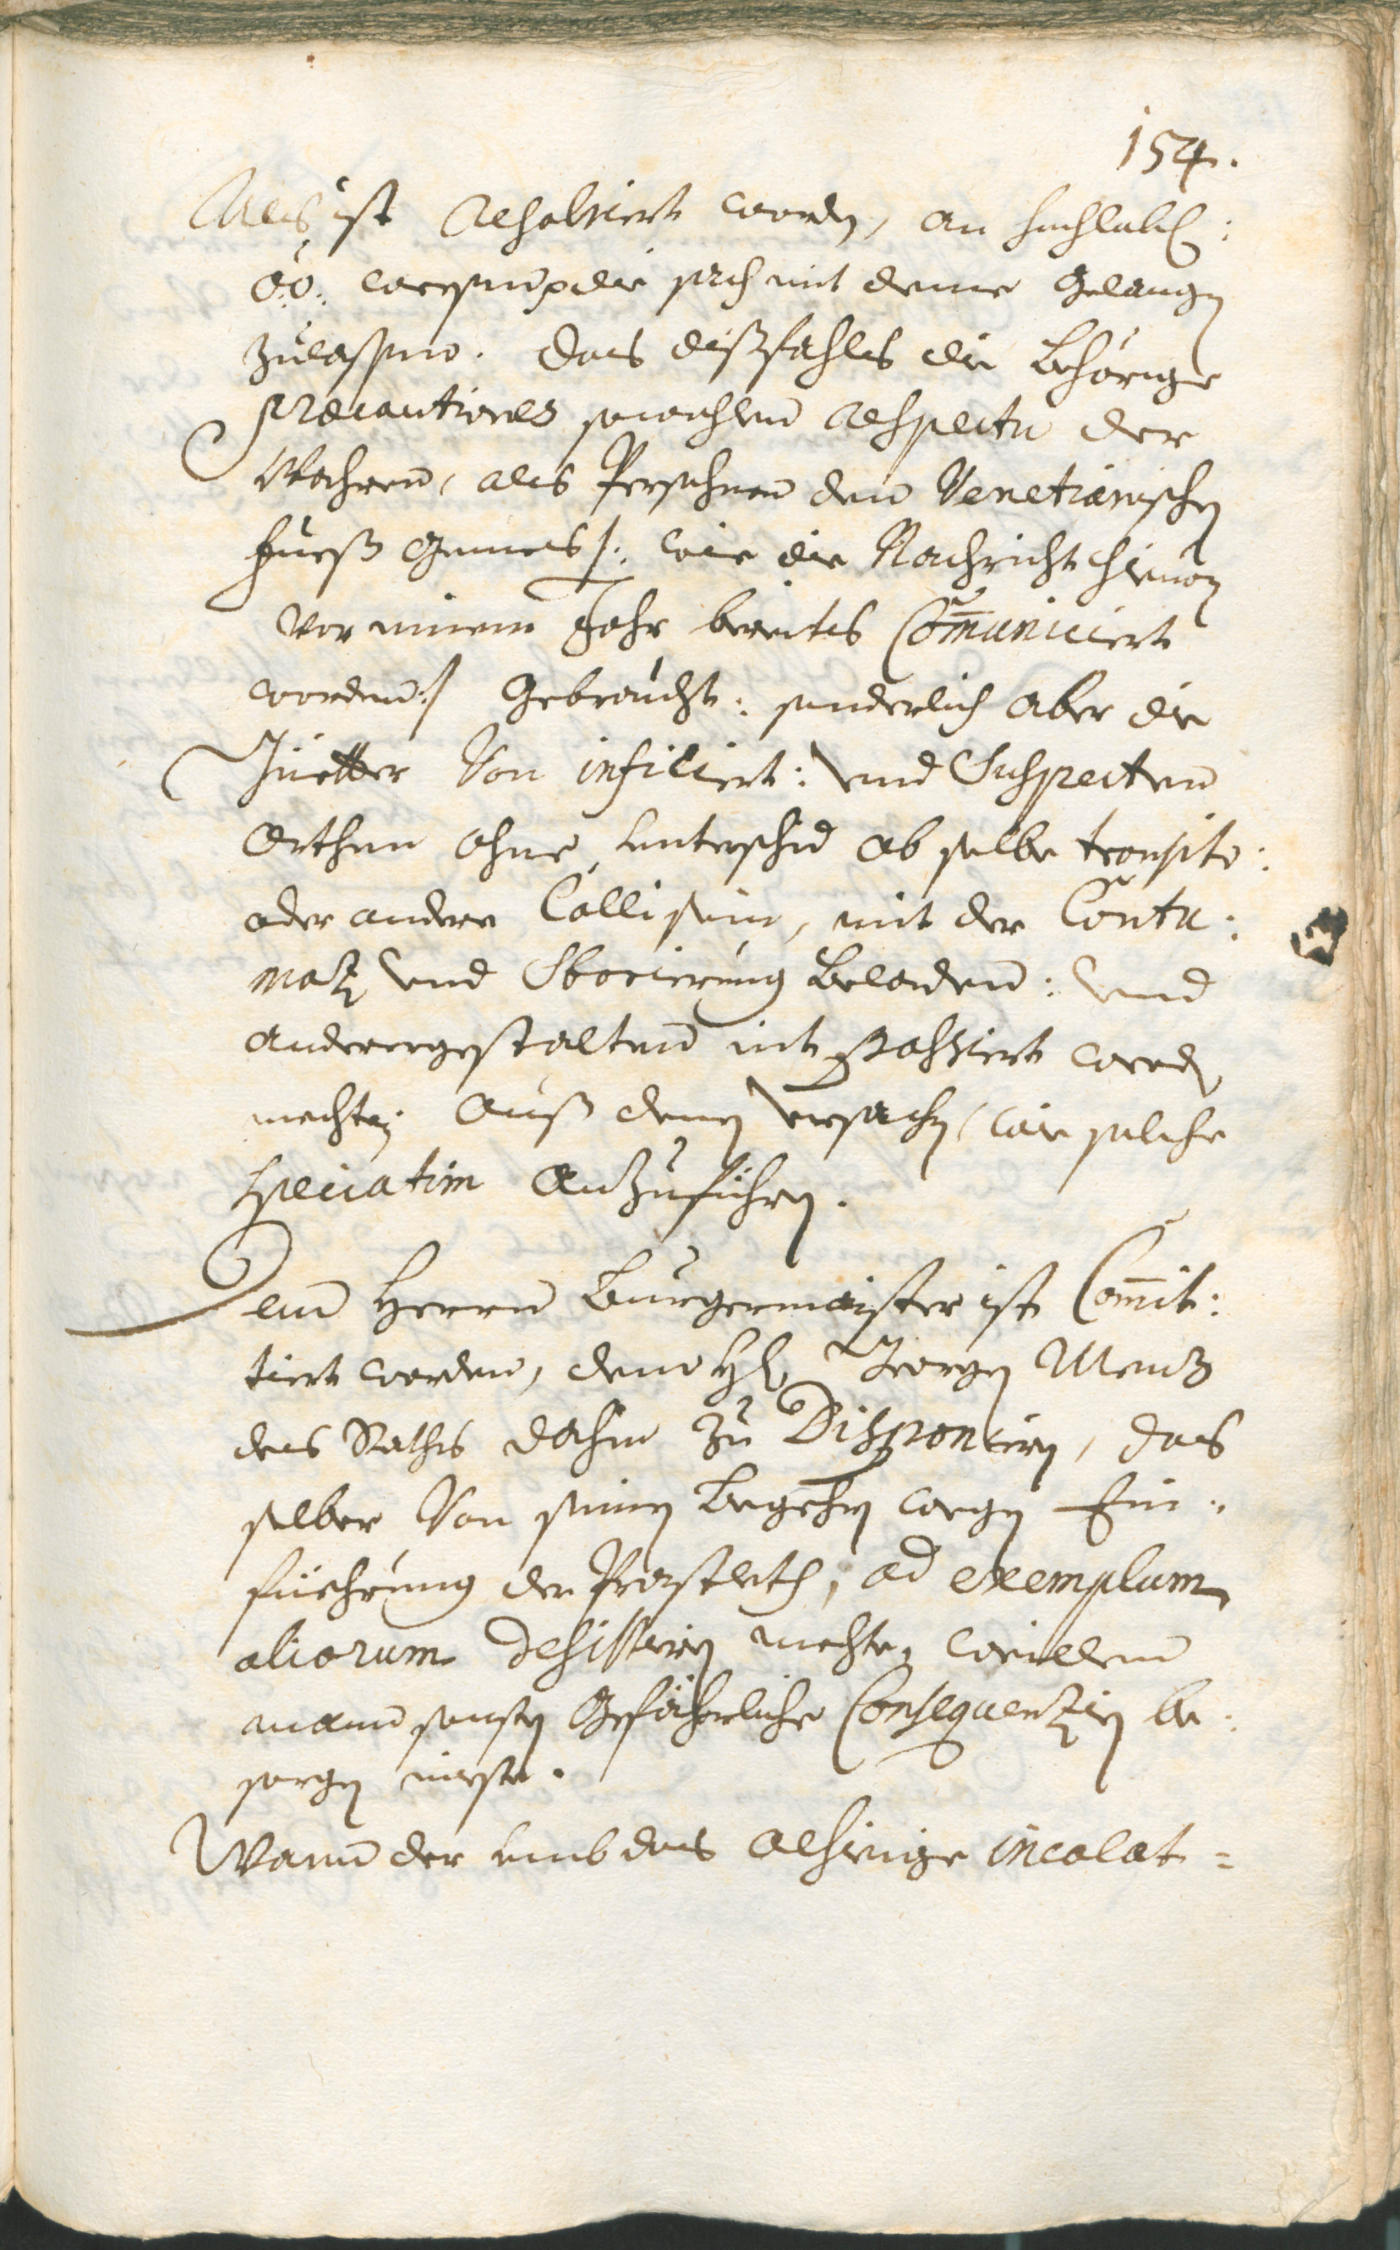 154.
Alls ist Resolviert worden, an hochlobl:
OÖ: weesen die sach mit deme gelangen
zulassen. das dißfahls die behörige
præcautiones sowohlen Respectu der
Wahren, als Persohnen dem Venetianischen
Fueß gemeß /: wie die Nachricht hievon
vor einem Jahr bereits Com̃uniciert
worden :/ gebraucht: sonderlich aber die
Güetter von inficiert: und Suspecten
Orthen ohne unterschid ob selbe transito:
oder andere Colli sein, mit der Contu:
maz und Sborierung beladen: und
anderergestalten nit passiert werden
mechten; auß denen ursachen, wie solche
speciatim anzuführen.
Dem Herrn Burgermaister ist Com̃it:
tiert worden, dem H: Georgen Menz
des Raths dahin zu Disponiern, das
selber von seinem begehren wegen Ein:
füehrung der Prastleth, ad exemplum
aliorum desistiern mechte, weillen
mann sonsten gefährliche Consequentzien be:
sorgen müeste.
Wann der umb das alhieige incolat=